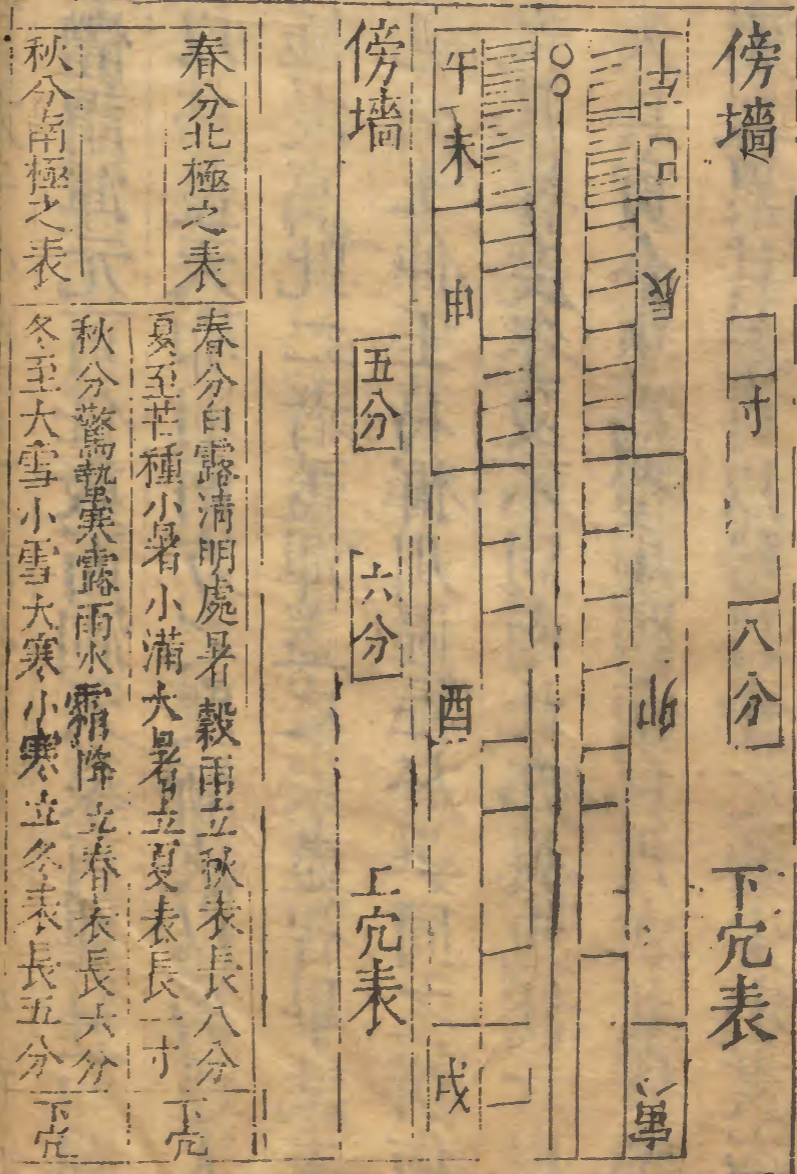 傍墻 一寸 八分 下穴表
午 巳 辰 卯 寅
午 未 申 酉 戌
傍墻 五分 六分 上穴表
春分北極之表
春分白露清明處暑穀雨立秋表長八分
夏至芒種小暑小滿大暑立夏表長一寸
下穴
秋分南極之表
秋分驚蟄寒露雨水霜降立春表長六分
冬至大雪小雪大寒小寒立冬表長五分
下穴